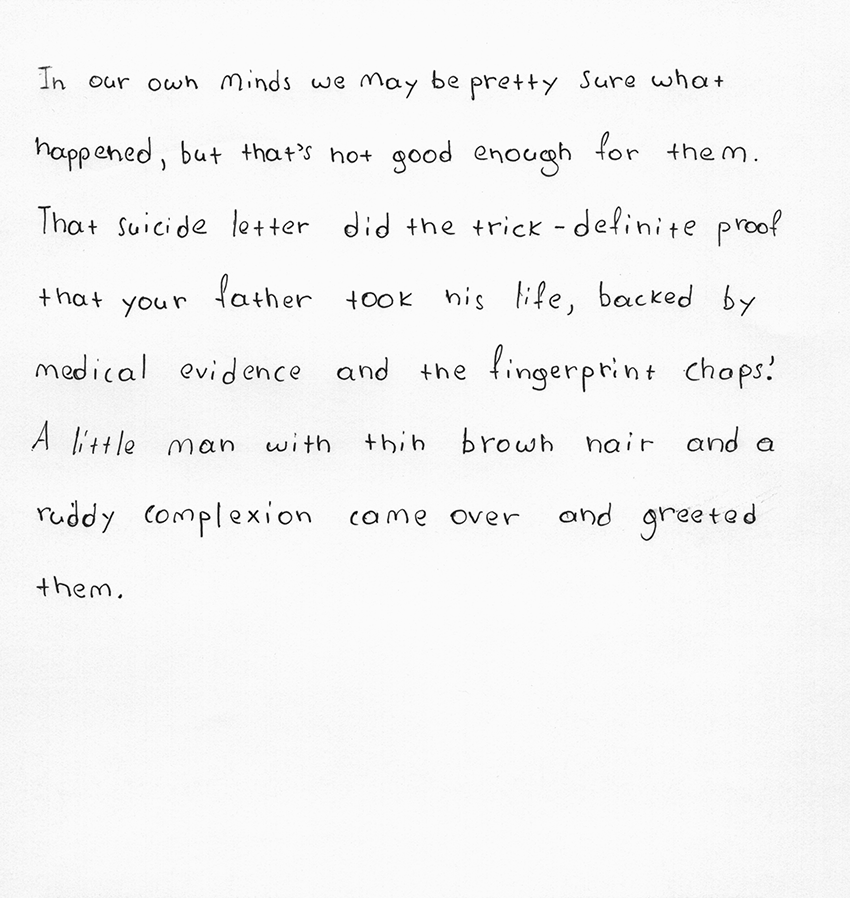 In our own minds we may be pretty sure what
happened, but that's not good enough for them.
That suicide letter did the trick - definite proof
that your father took his life, backed by
medical evidence and the fingerprint chaps!'
A little man with thin brown hair and a
ruddy complexion came over and greeted
them.